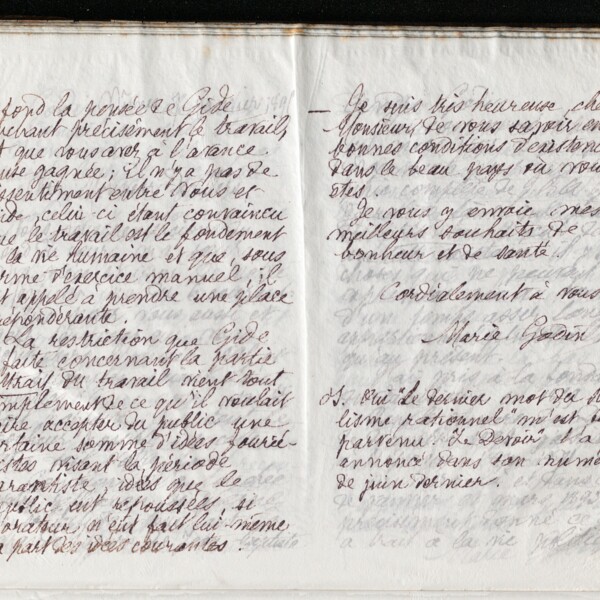 fond la pensée de Gide
uchant précisément le travail,
t que vous avez à l'avance
use gagnée; il n'y a pas de
ssentiment entre vous et
ide, celui-ci étant convaincu
ue le travail est le fondement
la vie humaine et que, sous
rme d'exercice manuel, il
t appelé à prendre une place
répondérante.
La restriction que Gide
faite concernant la partie
attrait du travail vient tout
mplement de ce qu'il voulait
ire accepter du public une
rtaine somme d'idées fourié-
istes visant la période
arantiste idées que le
public eut repoussées si
orateur n'eut fait lui-même
a part des idées courantes.
— Je suis très heureuse, che
Monsieur, de vous savoir en
bonnes conditions d'existenc
dans le beau pays où vou
êtes.
Je vous y envoie mes
meilleurs souhaits de
bonheur et de santé.
Cordialement à vous
Marie Godin
"Le dernier mot du
lisme rationnel" m'est
parvenu. "Le Devoir" l'a
annoncé dans son numé
de juin dernier.